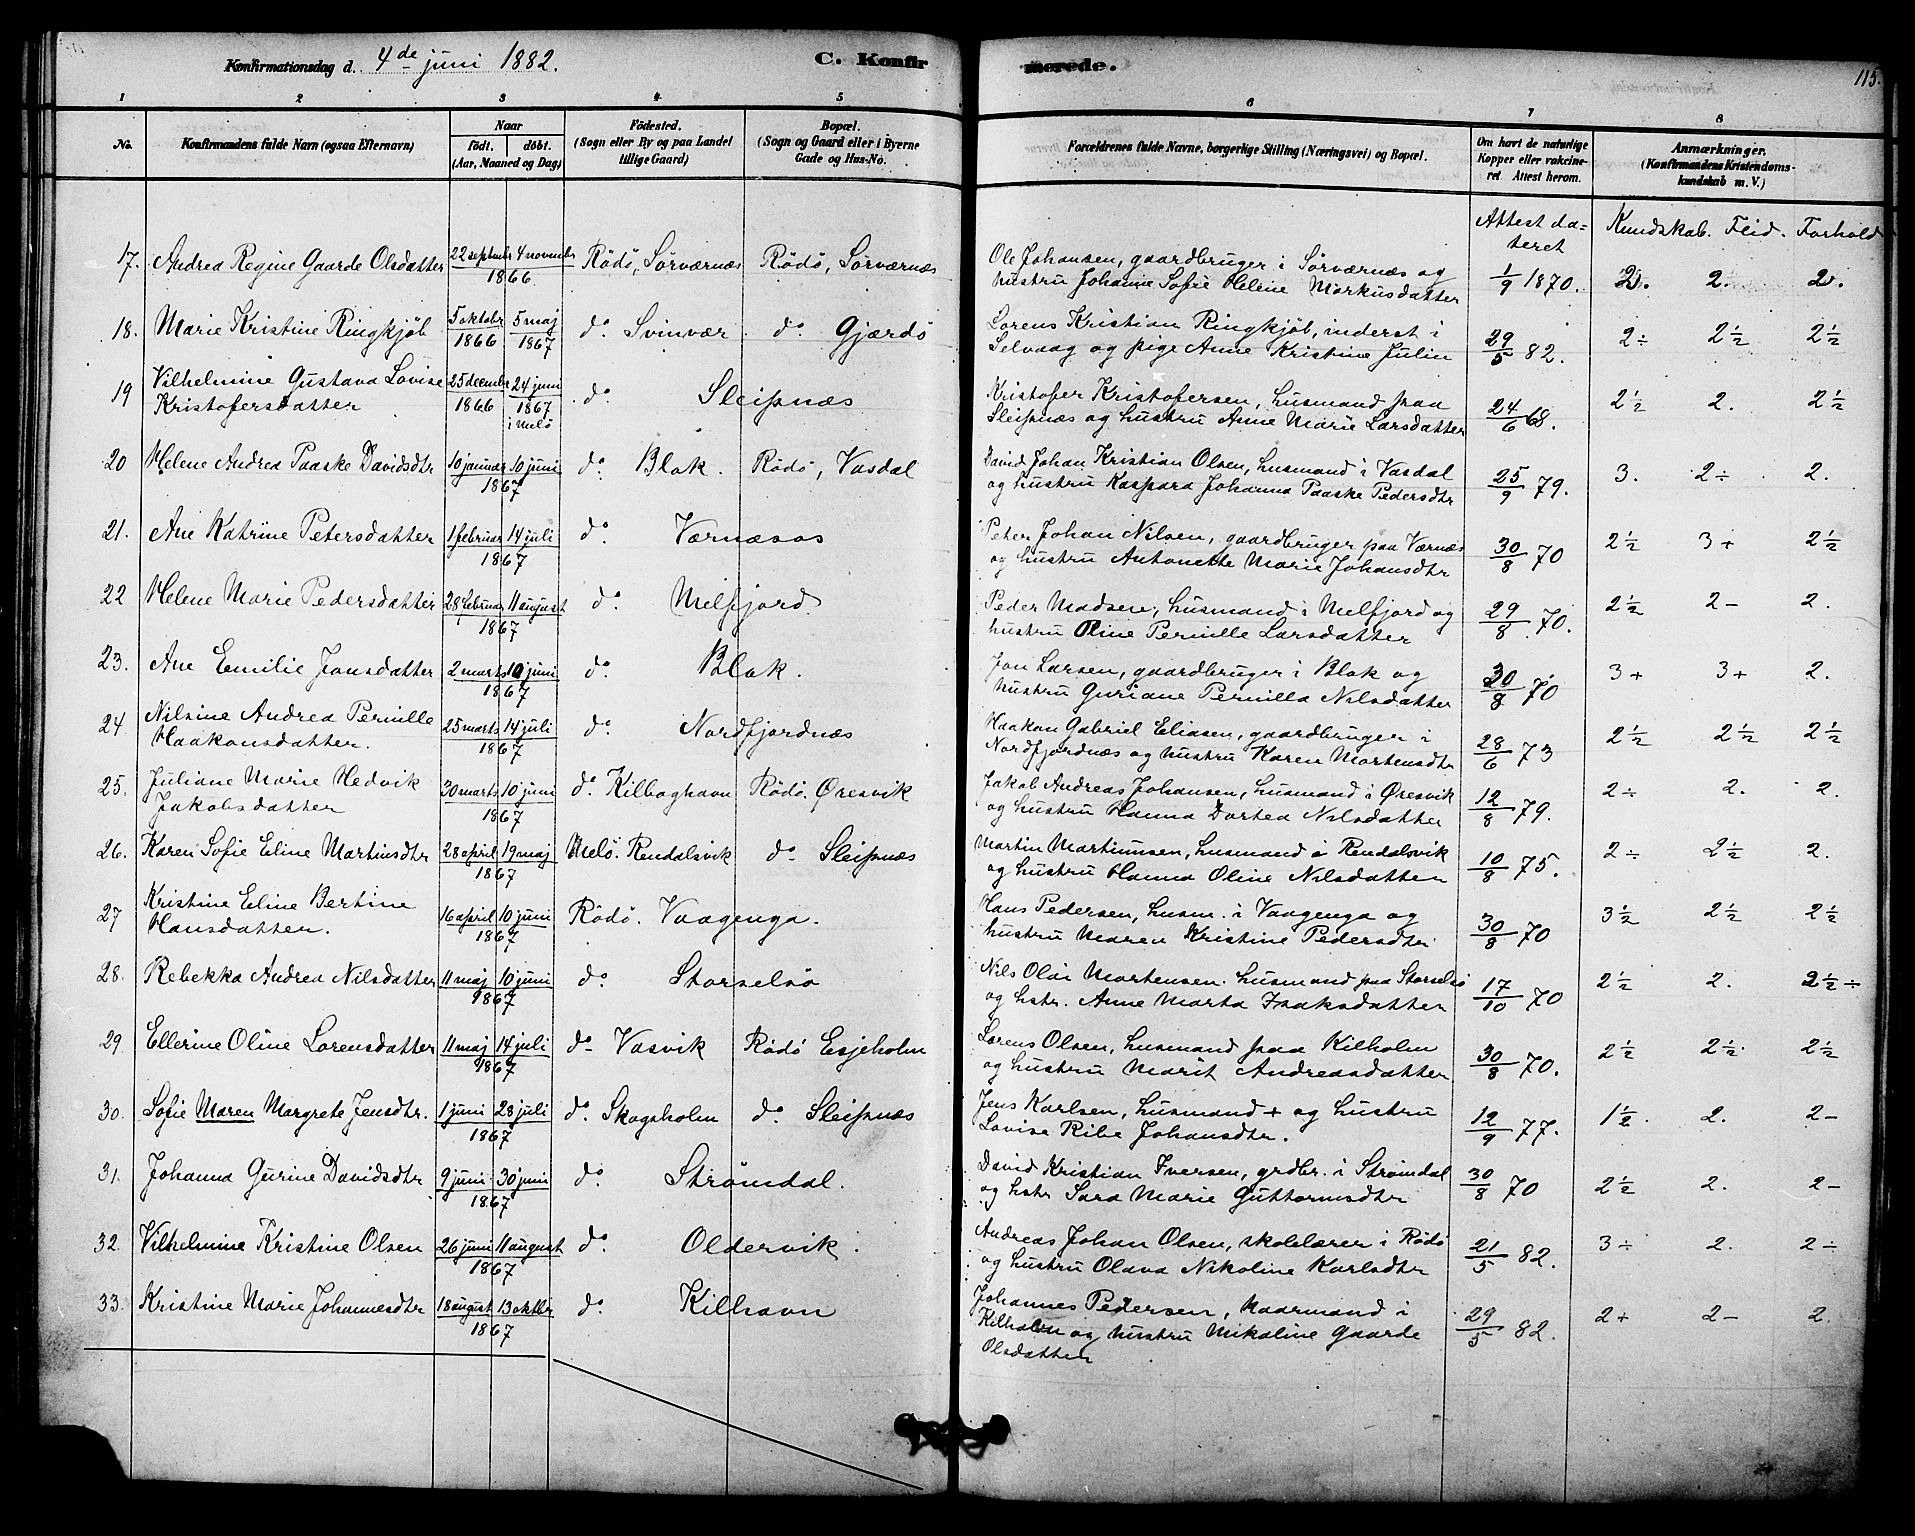 Konfirmationsdag d. 4de juni 1882. C. Konfirmerede. 115.
1 2 3 4 5 6 7 8
No. Konfirmandens fulde Navn (ogsaa Efternavn) Naar födt. döbt. (Aar, Maaned og Dag) Födested. (Sogn eller By og paa Landet tillige Gaard) Bopæl. (Sogn og Gaard eller i Byerne Gade og Hus-No. Forældrenes fulde Navne, borgerlige Stilling (Næringsvei) og Bopæl. Om havt de naturlige Kopper eller vakcineret Attest herom. Anmærkninger. (Konfirmandens Kristendomskundskab m. V.)
Attest dateret Kundskab. Flid. Forhold
17. Andrea Regine Gaarde Olsdatter 22 septembr 4 novembr 1866 Rödö, Sörværnæs Rödö, Sörværnæs Ole Johansen, gaardbruger i Sörværnæs og
hustru Johanne Sofie Helene Markusdatter 1/9 1870. 2. 2. 2.
18. Marie Kristine Ringkjöb 5 oktobr 1866 5 maj 1867 do Svinvær do Gjærdö Lorens Kristian Ringkjöb, inderst i
Selvaag og pige Anne Kristine Julin 29/5 82. 2÷ 2½ 2½
19 Vilhelmine Gustava Lovise
Kristofersdatter 25 decembr 1866 24 juni 1867 i Melö do Sleipnæs Kristofer Kristofersen, husmand paa
Sleipnæs og hustru Anne Marie Larsdatter 24/6 68. 2½ 2. 2½
20 Helene Andrea Paaske Davidsdtr 10 januar 10 juni 1867 do Blok. Rödö, Vasdal David Johan Kristian Olsen, husmand i Vasdal
og hustru Kaspara Johanna Paaske Pedersdtr 25/9 79. 3. 2÷ 2.
21. Ane Katrine Petersdatter 1 februar 14 juli 1867 do Værnæsos Peter Johan Nilsen, gaardbruger paa Værnæs
og hustru Antonette Marie Johansdtr 30/8 70 2½ 3+ 2½
22 Helene Marie Pedersdatter 28 februar 11 august 1867 do Melfjord Peder Madsen, husmand i Melfjord og
hustru Oline Pernille Larsdatter 29/8 70. 2½ 2- 2.
23. Ane Emilie Jonsdatter 2 marts 10 juni 1867 do Blok. Jon Larsen, gaardbruger i Blok og
hustru Guriane Pernilla Nilsdatter 30/8 70 3+ 3+ 2.
24 Nilsine Andrea Pernille
Haakonsdatter. 25 marts 14 juli 1867 do Nordfjordnæs Haakon Gabriel Eliasen, gaardbruger i
Nordfjordnæs og hustru Karen Mortensdtr 28/6 73 2½ 2½ 2½
25. Juliane Marie Hedvik
Jakobsdatter 30 marts 10 juni 1867 do Kilboghavn Rödö. Øresvik Jakob Andreas Johansen, husmand i Øresvik
og hustru Hanna Dortea Nilsdatter 12/8 79. 2÷ 2. 2.
26. Karen Sofie Eline Martinsdtr 28 april 19 maj 1867 Melö. Rendalsvik do Sleipnæs Martin Martinusen, husmand i Rendalsvik
og hustru Hanna Oline Nilsdatter 10/8 75. 2÷ 2½ 2.
27 Kristine Eline Bertine
Hansdatter. 16 april 10 juni 1867 Rödö. Vaagenga. Hans Pedersen, husm. i Vaagenga og
hustru Maren Kristine Pedersdtr 30/8 70 3½ 2½ 2½
28. Rebekka Andrea Nilsdatter 11 maj 10 juni 1867 do Storselsö Nils Olai Mortensen husmand paa Storselsö
og hstr. Anne Marta Isaksdatter 17/10 70 2½ 2. 2½÷
29 Ellerine Oline Lorensdatter 11 maj 14 juli 1867 do Vasvik Rödö Esjeholm Lorens Olsen, husmand paa Kilholm
og hustru Marit Andreasdatter 30/8 70. 2½ 2½ 2½
30. Sofie Maren Margrete Jensdtr. 1 juni 28 juli 1867 do Skogsholm do Sleipnæs Jens Karlsen, husmand + og hustru
Lovise Ribe Johansdtr. 12/9 77. 1½ 2. 2-
31. Johanna Gurine Davidsdtr 9 juni 30 juni 1867 do Strömdal. David Kristian Iversen, grdbr. i Strömdal
og hstr Sara Marie Guttormsdtr 30/8 70 2½ 2. 2-
32. Vilhelmine Kristine Olsen 26 juni 11 august 1867 do Oldervik. Andreas Johan Olsen, skolelærer i Rödö
og hustru Olava Nikoline Karlsdtr 21/5 82. 3÷ 2. 2÷
33. Kristine Marie Johannesdtr 18 august 13 oktbr 1867 do Kilhavn Johannes Pedersen, kaarmand i
Kilhavn og hustru Mikaline Gaarde
Olsdatter 29/5 82. 2+ 2- 2.